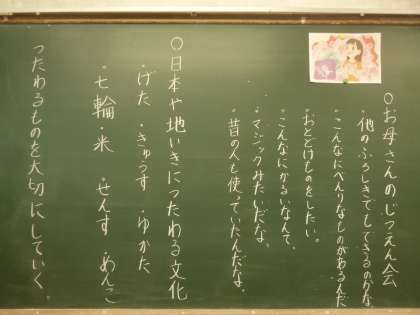 ○お母さんのじつえん会
・他のふろしきでもできるのかな
・こんなにべんりなものがあるんだ
・おとどけものをしたい。
・こんなにかるいなんて。
・マジックみたいだな。
・昔の人も使っていたんだな。
○日本や地いきにつたわる文化
・げた ・きゅうす ・ゆかた
・七輪・米 ・せんす ・あんこ
つたわるものを大切にしていく。